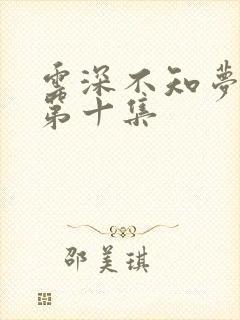 云深不知夢
第十集
邵美琪